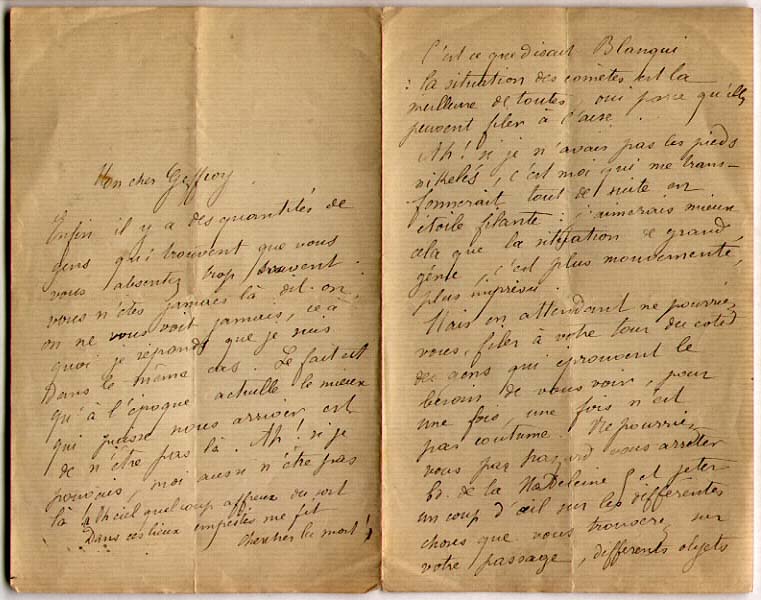 Mon cher Geffroy.
Enfin il y a des quantités de
gens qui trouvent que vous
vous absentez trop souvent.
vous n'êtes jamais là dit-on,
on ne vous voit jamais, ce à
quoi je réponds que je suis
Dans le même cas. Le fait est
qu'à l'époque actuelle le mieux
qui puisse nous arriver est
de n'être pas là. Ah! si je
pouvais, moi aussi n'être pas
là! Ah ciel quel coup affreux du sort
Dans ces lieux empestés me fit
chercher la mort!
C'est ce que disait Blanqui
: la situation des comètes est la
meilleure de toutes, oui parce qu'elles
peuvent filer à l'aise.
Ah! si je n'avais pas les pieds
nikelés, c'est moi qui me trans-
formerait tout de suite en
étoile filante: j'aimerais mieux
cela que la situation de grand
génie, c'est plus mouvementé,
plus imprévu.
Mais en attendant ne pourriez
vous, filer à votre tour du coté
des gens qui éprouvent le
besoin de vous voir, pour
une fois une fois n'est
pas coutume. Ne pourriez
vous par hazard vous arrêter
bd. de la Madeleine et jeter
un coup d'œil sur les différentes
choses que vous trouverez sur
votre passage, différents objets